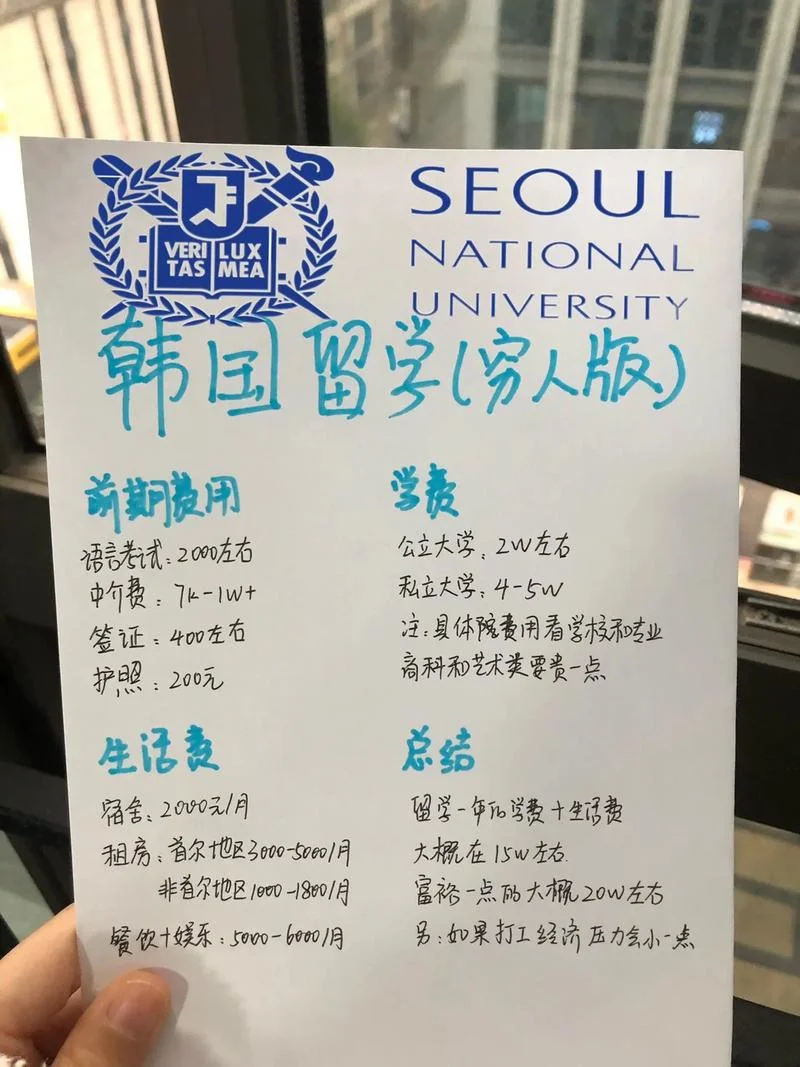 VERI LUX
TAS MEA
SEOUL
NATIONAL
UNIVERSITY
韩国留学(穷人版)
前期费用
语言考试：2000左右
中介费：7k-1W+
签证：400左右
护照：200元
学费
公立大学：2W左右
私立大学：4-5W
注：具体院费用看学校和专业
商科和艺术类要贵一点
生活费
宿舍：2000元/月
租房：首尔地区3000-5000/月
非首尔地区1000-1800/月
餐饮+娱乐：5000-6000/月
总结
留学一年的学费+生活费
大概在15W左右.
富裕一点的大概20W左右
另：如果打工经济压力会小一点